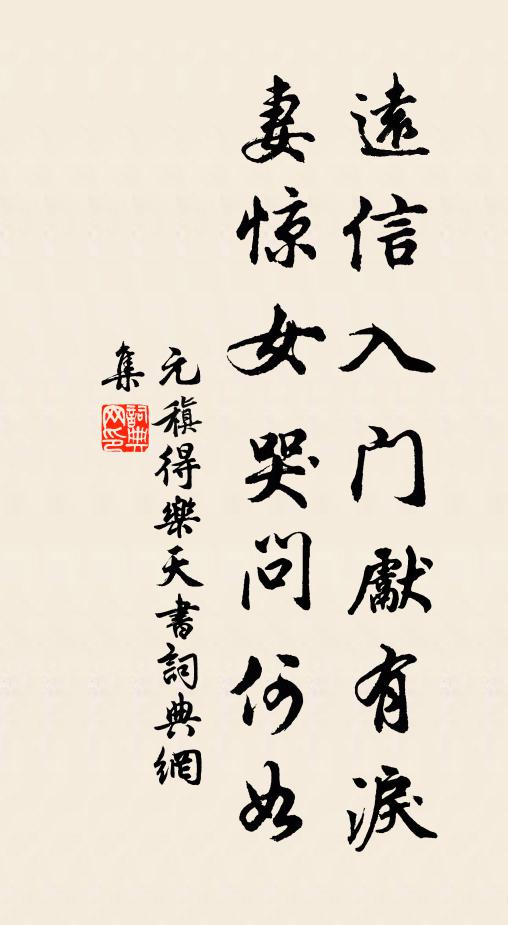 遠信入门獻有淚
妻惊女哭問何如
元稹得樂天書詞典網
集
詞典
网印